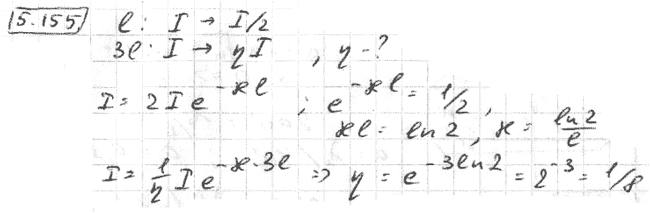 5.155 l: I → I/2
3l: I → ηI , η - ?
I = 2I e^{-ϰl} ; e^{-ϰl} = 1/2 ,
ϰl = ln2 , ϰ = ln2/l
I = 1/η I e^{-ϰ·3l} ⇒ η = e^{-3ln2} = 2^{-3} = 1/8